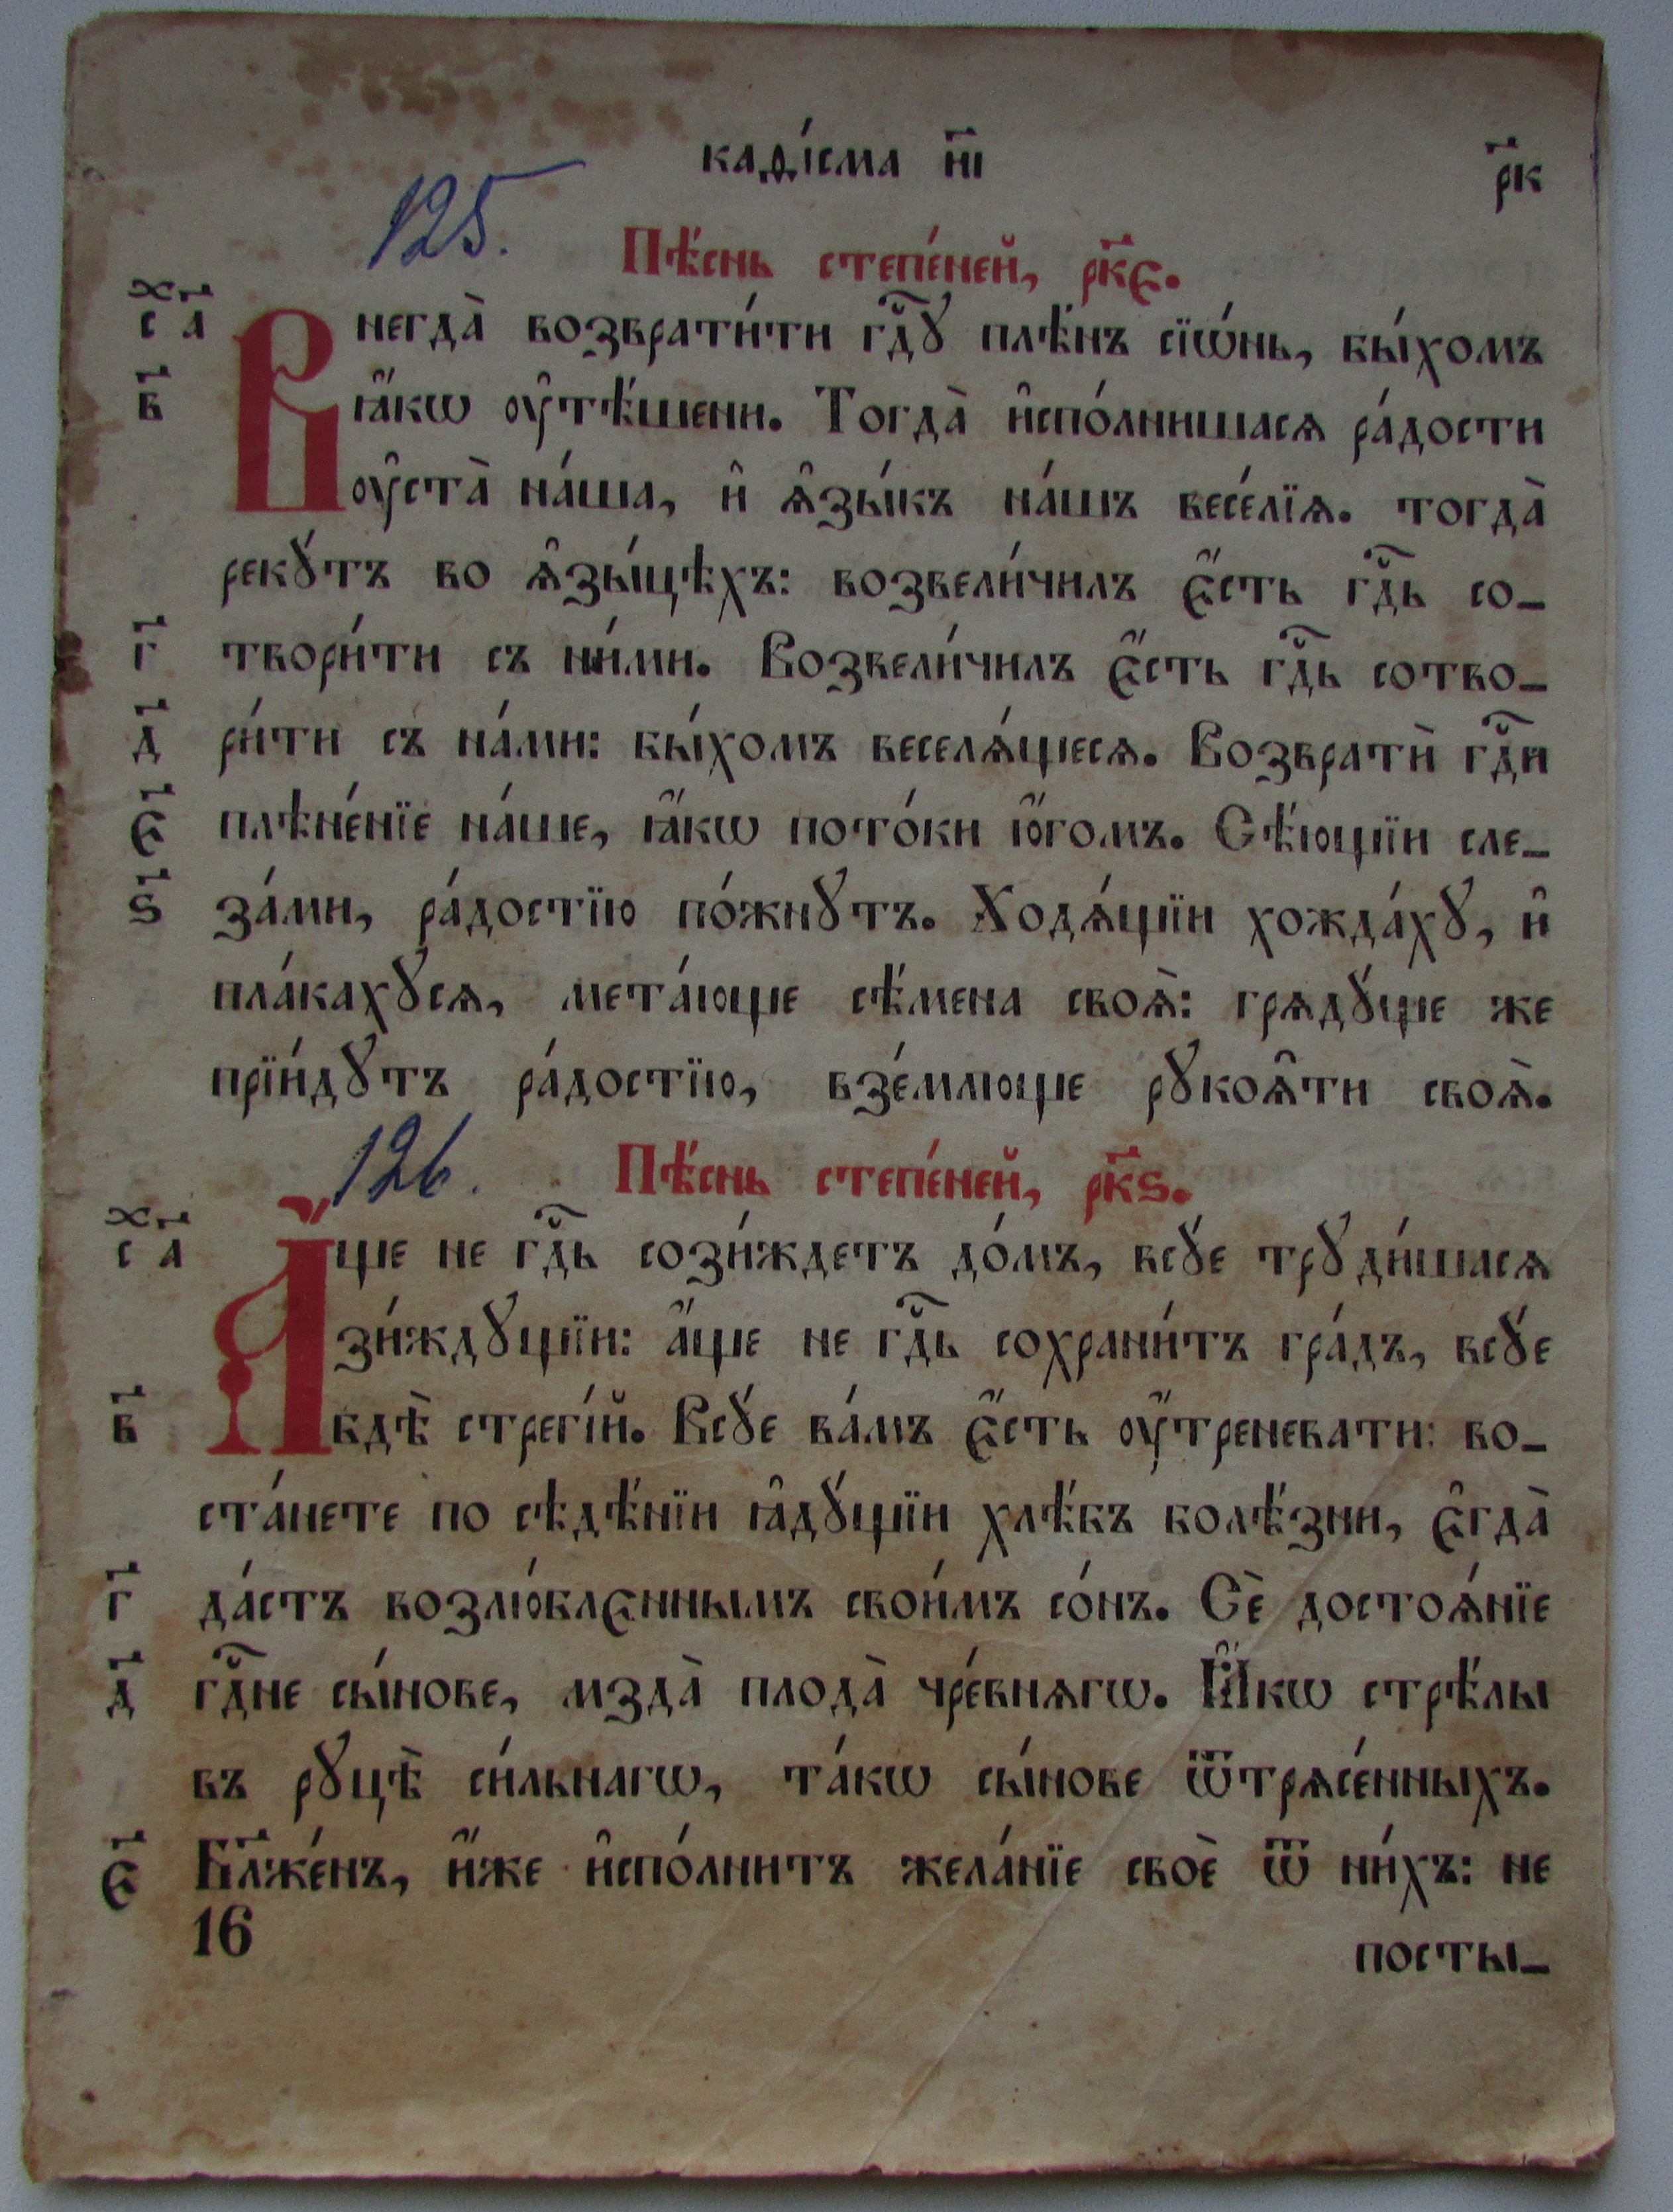 каѳі́сма н҃і
р҃к
125.
Пѣ́снь степе́ней, рк҃є.
с҃ а҃
Внегда̀ возврати́ти гдⷭ҇ꙋ плѣ́нъ сїѡ́нь, бы́хомъ
в҃
ꙗ҆́кѡ ᲂу҆тѣ́шени. Тогда̀ и҆спо́лнишася ра́дости
ᲂу҆ста̀ на́ша, и҆ ѧ҆зы́къ на́шъ весе́лїѧ. тогда̀
рекꙋ́тъ во ѧ҆зы́цѣхъ: возвели́чилъ є҆́сть гдⷭ҇ь со-
г҃
твори́ти съ ни́ми. Возвели́чилъ є҆́сть гдⷭ҇ь сотво-
д҃
ри́ти съ на́ми: бы́хомъ веселѧ́щесѧ. Возвратѝ гдⷭ҇и
є҃
плѣне́нїе на́ше, ꙗ҆́кѡ пото́ки ю҆́гомъ. Сѣ́ющїи сле-
ѕ҃
за́ми, ра́достїю по́жнꙋтъ. Ходѧ́щїи хожда́хꙋ, и҆
пла́кахꙋсѧ, мета́юще сѣ́мена своѧ̀: грѧдꙋ́ще же
прїи́дꙋтъ ра́достїю, взе́млюще рꙋкоѧ҆ти своѧ̀.
126.
Пѣ́снь степе́ней, рк҃ѕ.
с҃ а҃
А҆́ще не гдⷭ҇ь сози́ждетъ до́мъ, всꙋ́е трꙋди́шасѧ
зи́ждꙋщїи: а҆́ще не гдⷭ҇ь сохрани́тъ гра́дъ, всꙋ́е
в҃
бдѣ̀ стрегі́й. Всꙋ́е ва́мъ є҆́сть ᲂу҆́треневати: во-
ста́нете по сѣдѣ́нїи ꙗ҆дꙋ́щїи хлѣ́бъ болѣ́зни, є҆гда̀
г҃
да́стъ возлю́блєннымъ свои̑мъ со́нъ. Сѐ достоѧ́нїе
д҃
гдⷭ҇не сы́нове, мзда̀ плода̀ чре́внѧгѡ. Ꙗ҆́кѡ стрѣ́лы
въ рꙋцѣ̀ си́льнагѡ, та́кѡ сы́нове ѿтрѧсе́нныхъ.
є҃
Бл҃же́нъ, и҆́же и҆спо́лнитъ жела́нїе своѐ ѿ ни́хъ: не
16
посты-